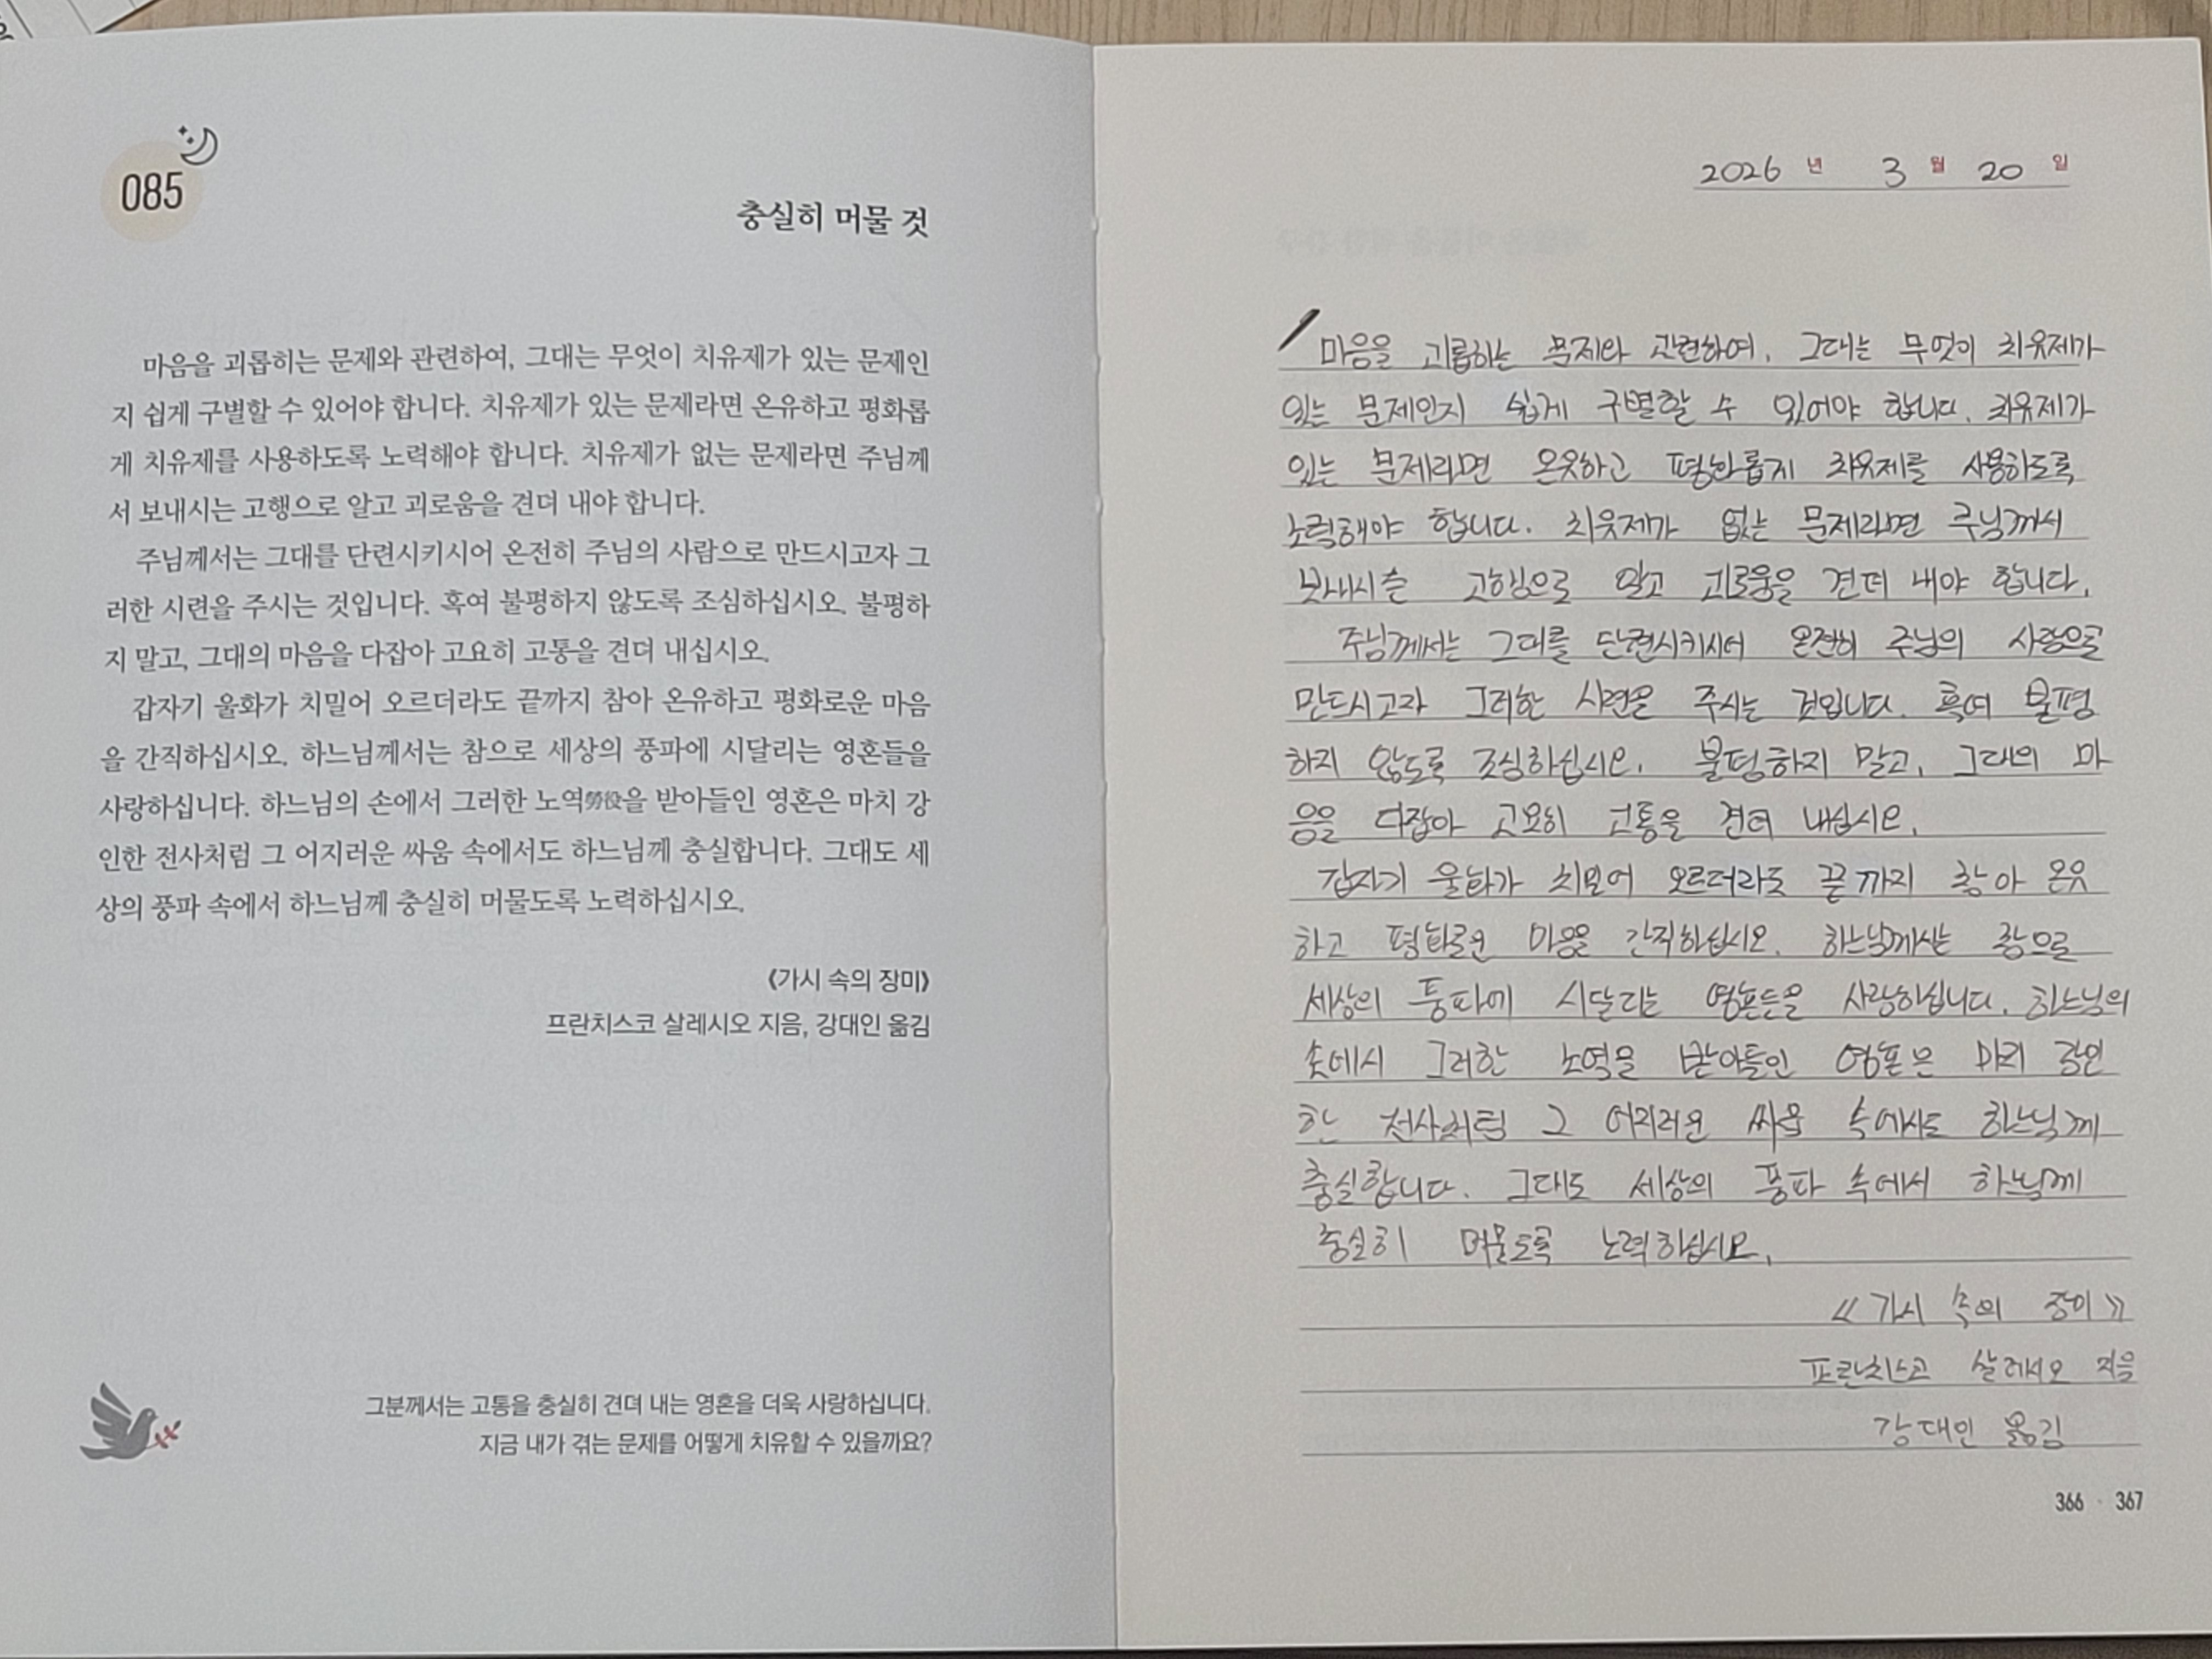 085
충실히 머물 것
마음을 괴롭히는 문제와 관련하여, 그대는 무엇이 치유제가 있는 문제인
지 쉽게 구별할 수 있어야 합니다. 치유제가 있는 문제라면 온유하고 평화롭
게 치유제를 사용하도록 노력해야 합니다. 치유제가 없는 문제라면 주님께
서 보내시는 고행으로 알고 괴로움을 견뎌 내야 합니다.
주님께서는 그대를 단련시키시어 온전히 주님의 사람으로 만드시고자 그
러한 시련을 주시는 것입니다. 혹여 불평하지 않도록 조심하십시오. 불평하
지 말고, 그대의 마음을 다잡아 고요히 고통을 견뎌 내십시오.
갑자기 울화가 치밀어 오르더라도 끝까지 참아 온유하고 평화로운 마음
을 간직하십시오. 하느님께서는 참으로 세상의 풍파에 시달리는 영혼들을
사랑하십니다. 하느님의 손에서 그러한 노역勞役을 받아들인 영혼은 마치 강
인한 전사처럼 그 어지러운 싸움 속에서도 하느님께 충실합니다. 그대도 세
상의 풍파 속에서 하느님께 충실히 머물도록 노력하십시오.
《가시 속의 장미》
프란치스코 살레시오 지음, 강대인 옮김
그분께서는 고통을 충실히 견뎌 내는 영혼을 더욱 사랑하십니다.
지금 내가 겪는 문제를 어떻게 치유할 수 있을까요?
2026 년 3 월 20 일
마음을 괴롭히는 문제와 관련하여, 그대는 무엇이 치유제가
있는 문제인지 쉽게 구별할 수 있어야 합니다. 치유제가
있는 문제라면 온윳하고 평화롭게 치유제를 사용하도록
노력해야 합니다. 치윳제가 없는 문제라면 주님께서
보내시는 고행으로 알고 괴로움을 견뎌 내야 합니다.
주님께서는 그대를 단련시키시어 온전히 주님의 사람으로
만드시고자 그러한 시련을 주시는 것입니다. 혹여 불평
하지 않도록 조심하십시오. 불평하지 말고, 그대의 마
음을 다잡아 고요히 고통을 견뎌 내십시오.
갑자기 울화가 치밀어 오르더라도 끝까지 참아 온유
하고 평화로운 마음을 간직하십시오. 하느님께서는 참으로
세상의 풍파에 시달리는 영혼들을 사랑하십니다. 하느님의
손에서 그러한 노역을 받아들인 영혼은 마치 강인
한 전사처럼 그 어지러운 싸움 속에서도 하느님께
충실합니다. 그대도 세상의 풍파 속에서 하느님께
충실히 머물도록 노력하십시오.
《가시 속의 장미》
프란치스코 살레시오 지음
강대인 옮김
366 · 367